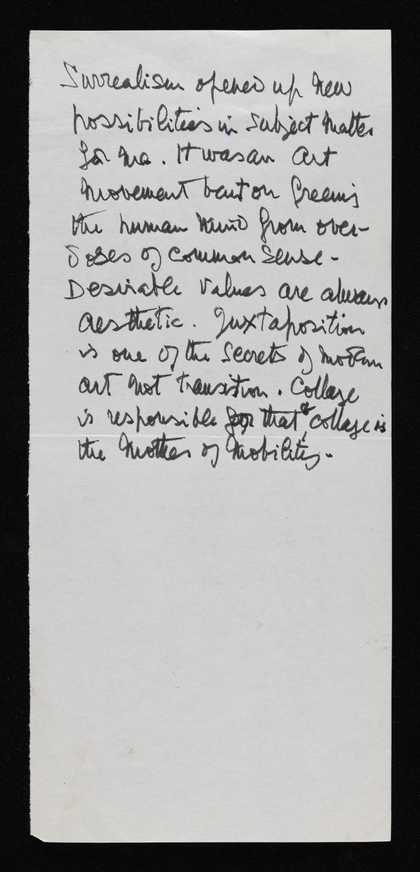 Surrealism opened up new
possibilities in subject matter
for me. It was an art
movement bent on freeing
the human mind from over-
doses of common sense-
Desirable values are always
aesthetic. Juxtaposition
is one of the secrets of modern
art not transition. Collage
is responsible for that & collage is
the mother of mobility.